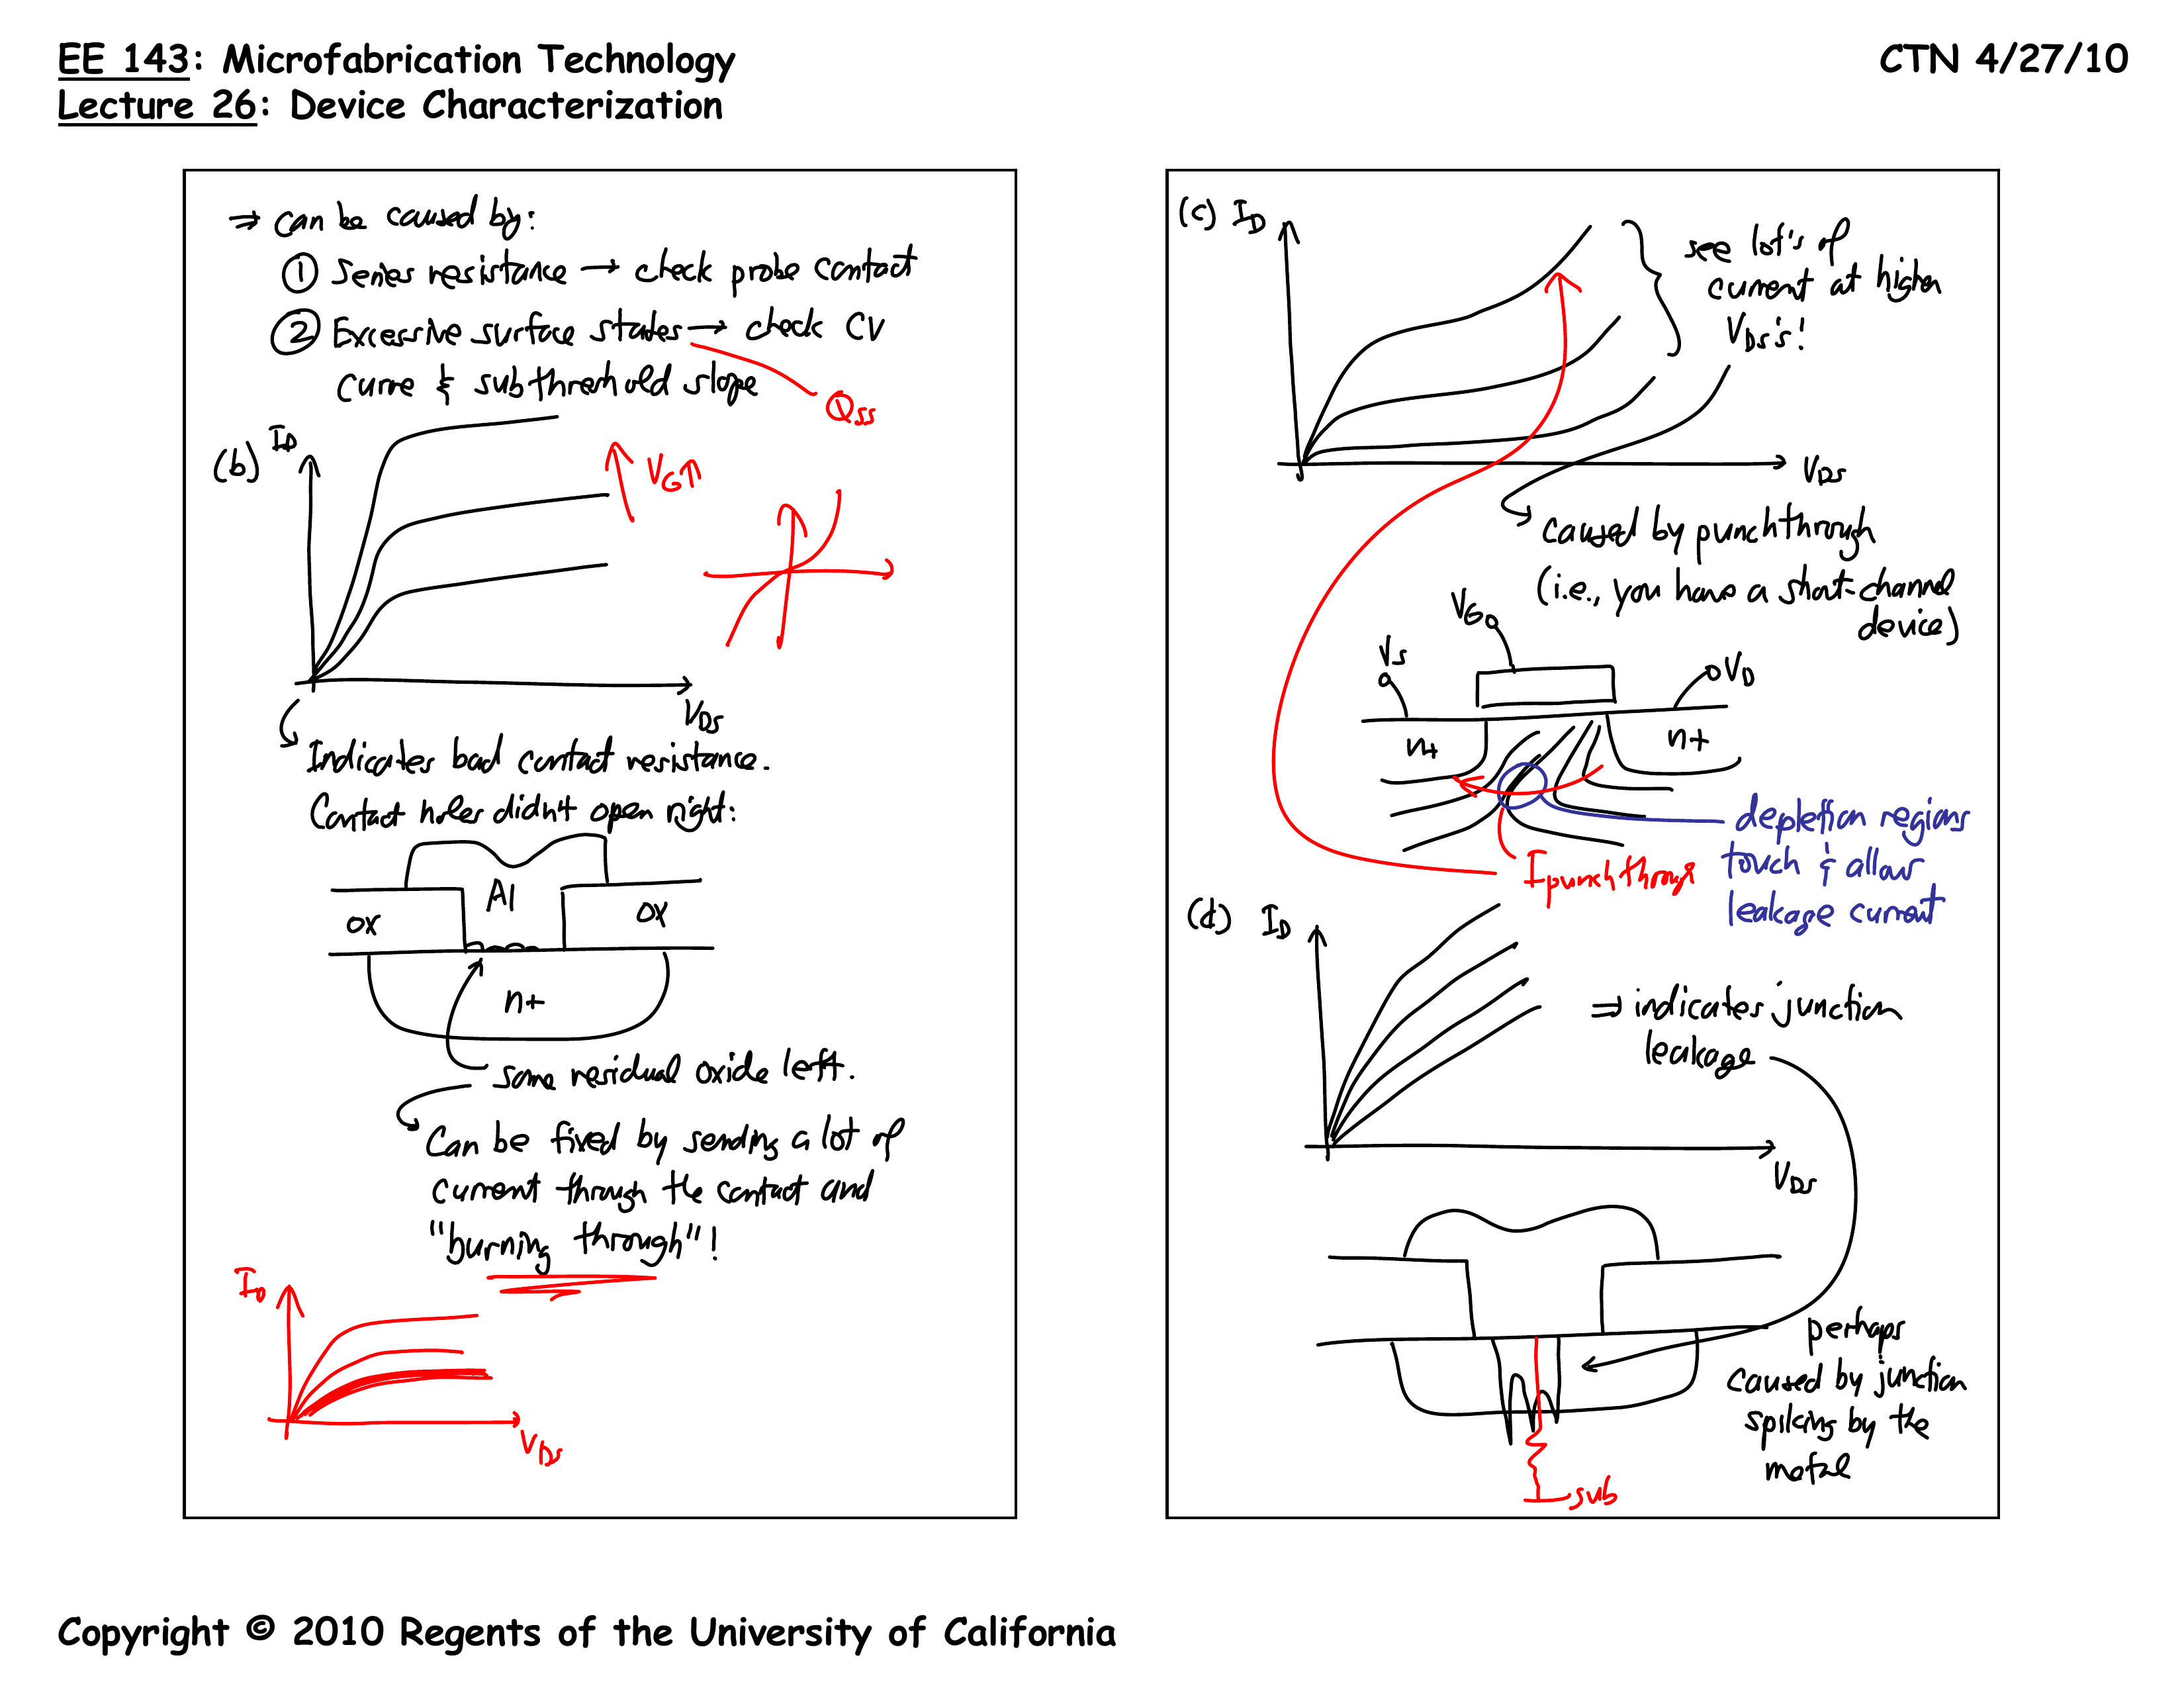 EE 143: Microfabrication Technology
CTN 4/27/10
Lecture 26: Device Characterization
⇒ can be caused by:
① Series resistance → check probe contact
② Excessive surface states → check CV
curve & subthreshold slope
Qss
(b) ID
VG↑
VDS
Indicates bad contact resistance.
Contact holes didn't open right:
Al
ox
ox
n+
some residual oxide left.
Can be fixed by sending a lot of
current through the contact and
"burning through"!
ID
VDS
(c) ID
see lot's of
current at higher
VDS's!
VDS
caused by punchthrough
(i.e., you have a short-channel
device)
VG
VS
VD
n+
n+
depletion regions
touch & allow
leakage current
Ipunchthrough
(d) ID
⇒ indicates junction
leakage
VDS
perhaps
caused by junction
spiking by the
metal
sub
Copyright © 2010 Regents of the University of California